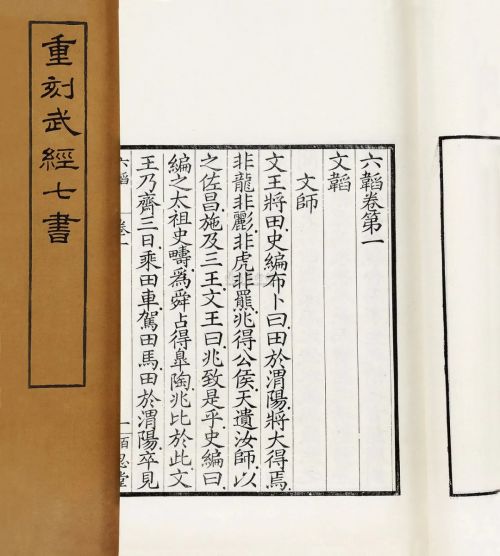 重刻武經七書
六韜卷第一
文韜
文師
文王將田史編布卜曰田於渭陽將大得焉
非龍非彲非虎非羆兆得公侯天遺汝師以
之佐昌施及三王文王曰兆致是乎史編曰
編之太祖史疇爲舜占得皐陶兆比於此文
王乃齊三日乘田車駕田馬田於渭陽卒見
六韜 卷一 一 百忍堂